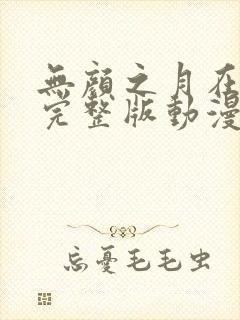 無顏之月在
完整版動漫
忘憂毛毛虫